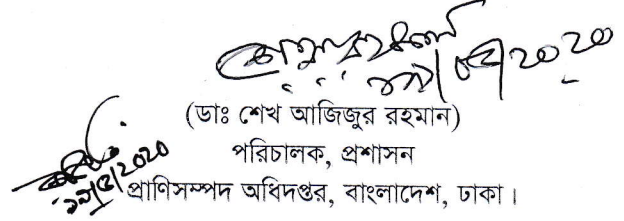 (ডাঃ শেখ আজিজুর রহমান)
পরিচালক, প্রশাসন
প্রাণিসম্পদ অধিদপ্তর, বাংলাদেশ, ঢাকা।